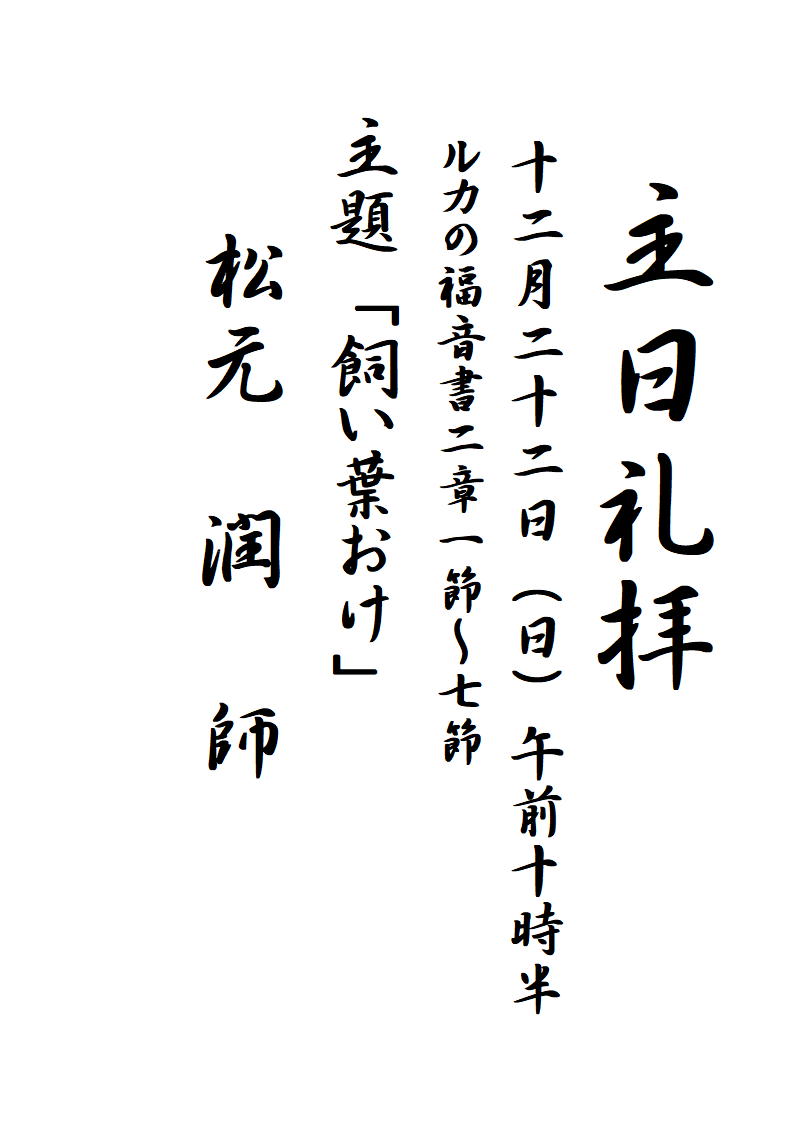 主日礼拝
十二月二十二日（日）午前十時半
ルカの福音書二章一節～七節
主題「飼い葉おけ」
松元 潤 師